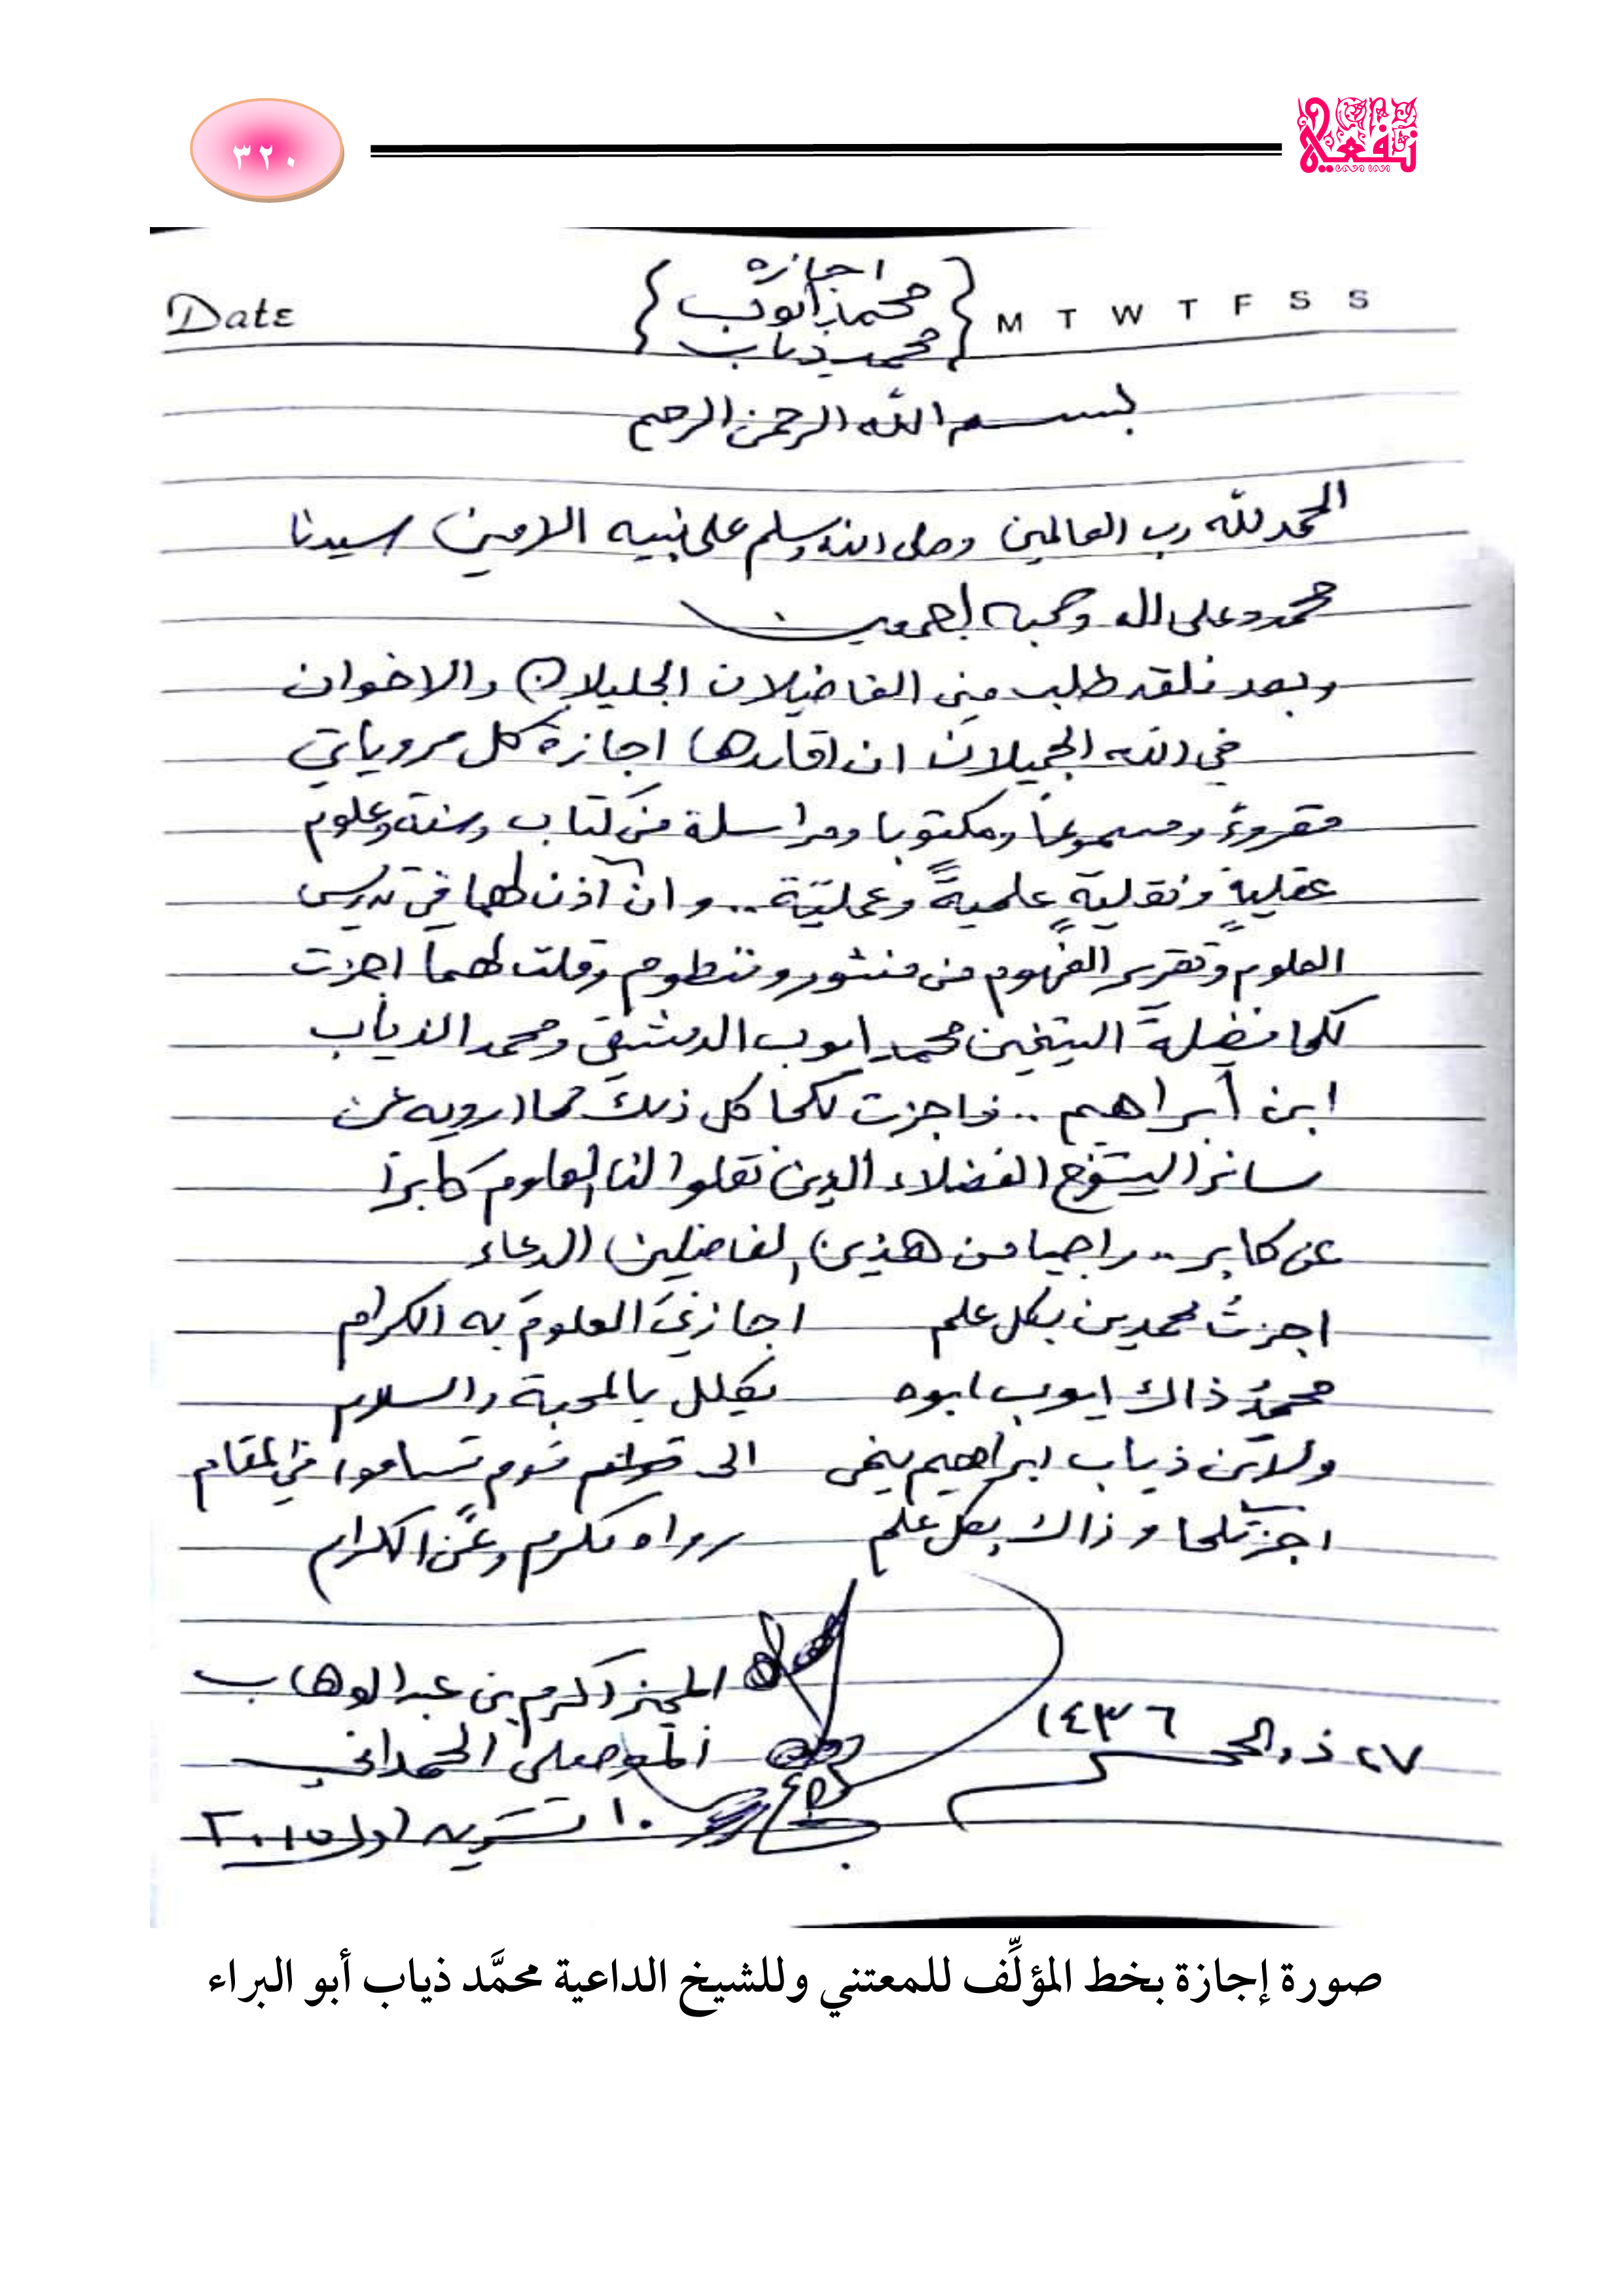 نفعية
٣٢٠
Date { اجازة M T W T F S S
محمد ايوب
محمد ذياب }
بسم الله الرحمن الرحيم
الحمد لله رب العالمين وصلى الله وسلم على نبيه الامين سيدنا
محمد وعلى اله وصحبه اجمعين
وبعد فلقد طلب مني الفاضلان الجليلان والاخوان
في الله الجميلان ان اجازة كل مروياتي
مقروءً ومسموعاً ومكتوبا ومراسلة من كتاب وسنة وعلوم
عقليةٍ ونقليةٍ علميةً وعمليّة .. وان آذن لهما في تدريس
العلوم وتقرير الفهوم من منثور ومنظوم وقلت لهما اجزت
لكما فضيلةَ الشيخين محمد ايوب الدمشقي ومحمد الذياب
ابن ابراهيم .. فاجزت لكما كل ذلك مما ارويه عن
سائر الشيوخ الفضلاء الذين نقلوا لنا العلوم كابراً
عن كابر .. راجيا من هذين الفاضلين الدعاء
اجزتُ محمدين بكل علم اجازنيَ العلومَ به الكرام
محمدُ ذاك ايوب ابوه يكلل بالمحبة والسلام
ولابن ذياب ابراهيم ينمى الى قوم تساموا في المقام
اجزتكما وذاك بكل علم رواه مكرم وعن الكرام
المجيز اكرم بن عبد الوهاب
الموصلي الحمداني
٢٧ ذو الحجة ١٤٣٦
١٠ تشرين اول ٢٠١٥
صورة إجازة بخط المؤلِّف للمعتني وللشيخ الداعية محمَّد ذياب أبو البراء